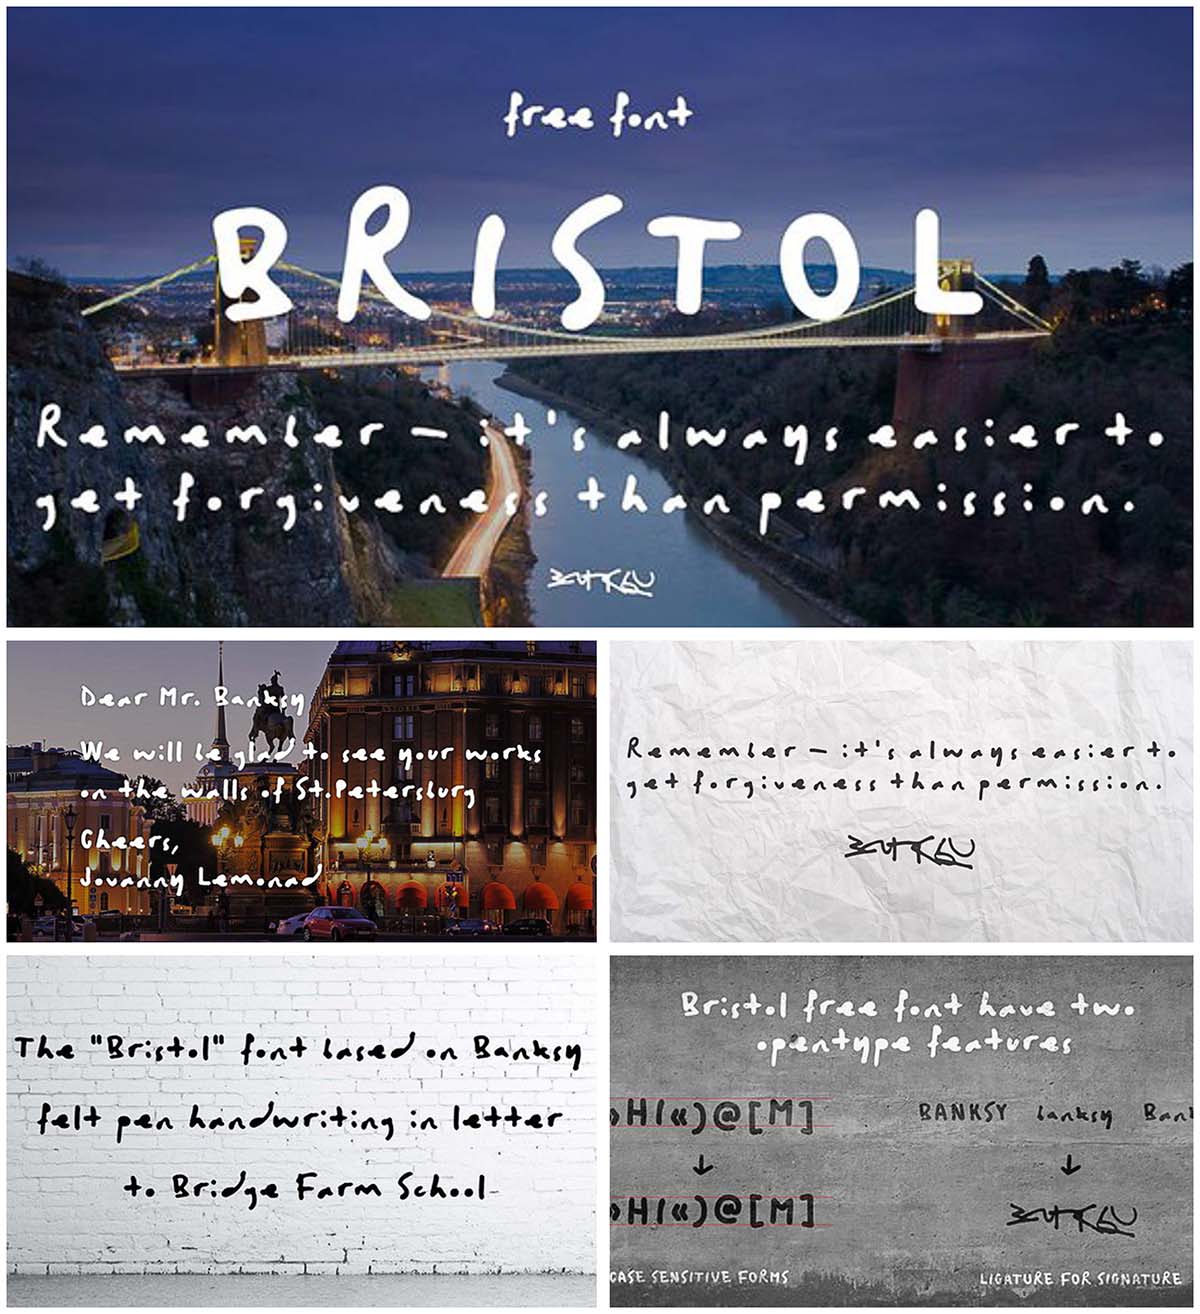 free font
BRISTOL
Remember – it's always easier to
get forgiveness than permission.
Dear Mr. Banksy
We will be glad to see your works
on the walls of St.Petersburg
Cheers,
Jovanny Lemonad
Remember – it's always easier to
get forgiveness than permission.
The "Bristol" font based on Banksy
felt pen handwriting in letter
to Bridge Farm School
Bristol free font have two
opentype features
›H/«)@[M]
BANKSY banksy Bank
›H/«)@[M]
CASE SENSITIVE FORMS
LIGATURE FOR SIGNATURE